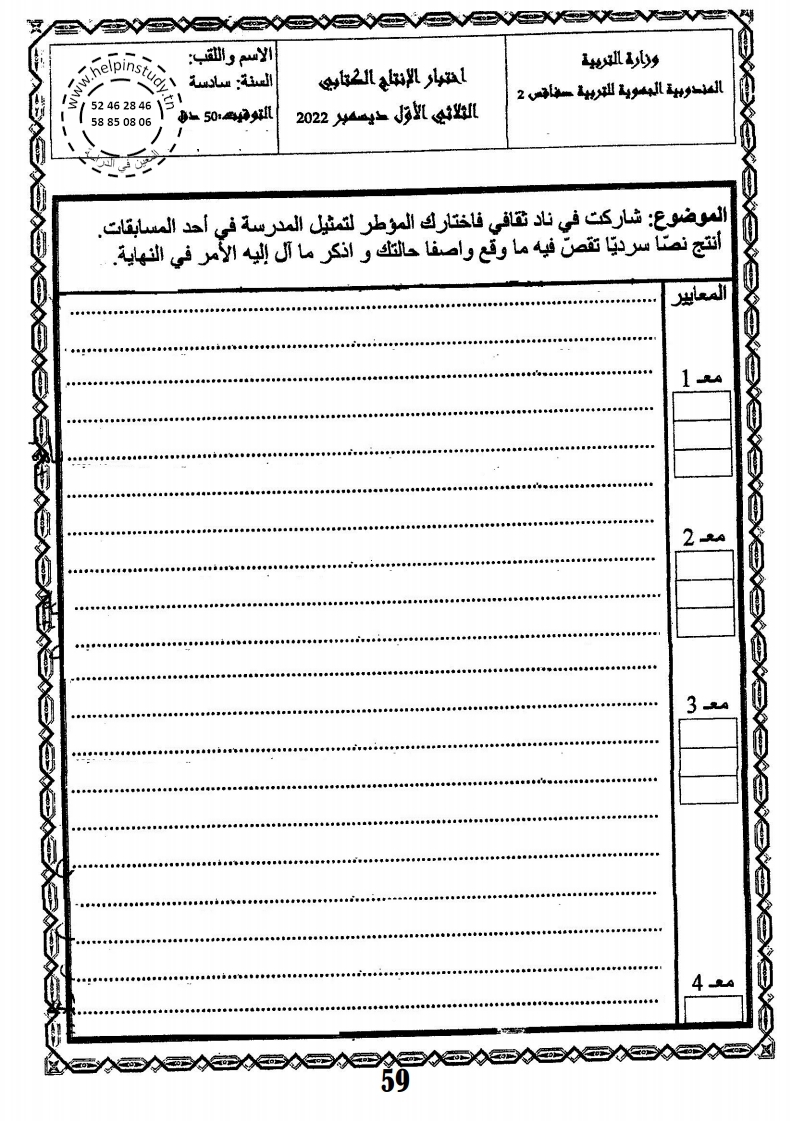 وزارة التربية
المندوبية الجهوية للتربية صفاقس 2
اختبار الإنتاج الكتابي
الثلاثي الأوّل ديسمبر 2022
الاسم واللقب:
السنة: سادسة
التوقيت: 50 دق
www.helpinstudy.tn
52 46 28 46
58 85 08 06
المعين في الدراسة
الموضوع: شاركت في ناد ثقافي فاختارك المؤطر لتمثيل المدرسة في أحد المسابقات.
أنتج نصّا سرديّا تقصّ فيه ما وقع واصفا حالتك و اذكر ما آل إليه الأمر في النهاية.
المعايير
معـ 1
معـ 2
معـ 3
معـ 4
59